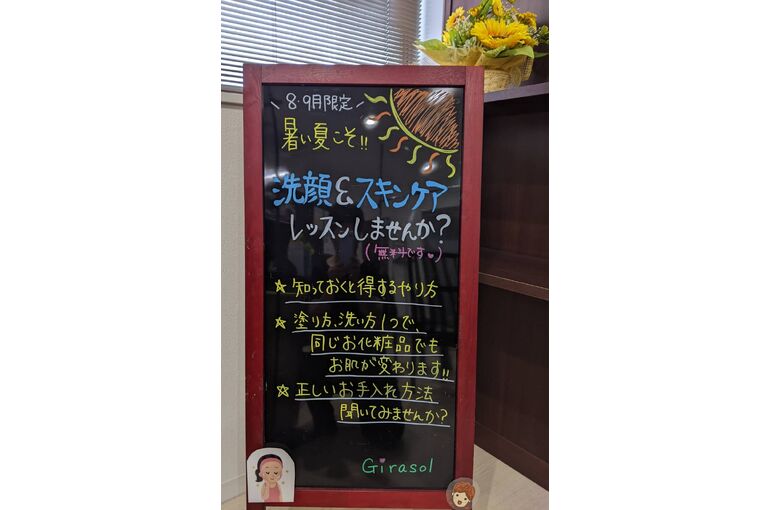 \ 8・9月限定 /
暑い夏こそ!!
洗顔&スキンケア
レッスンしませんか?
(無料です♥)
☆ 知っておくと得するやり方
☆ 塗り方、洗い方1つで、
同じお化粧品でも
お肌が変わります!!
☆ 正しいお手入れ方法
聞いてみませんか?
Girasol